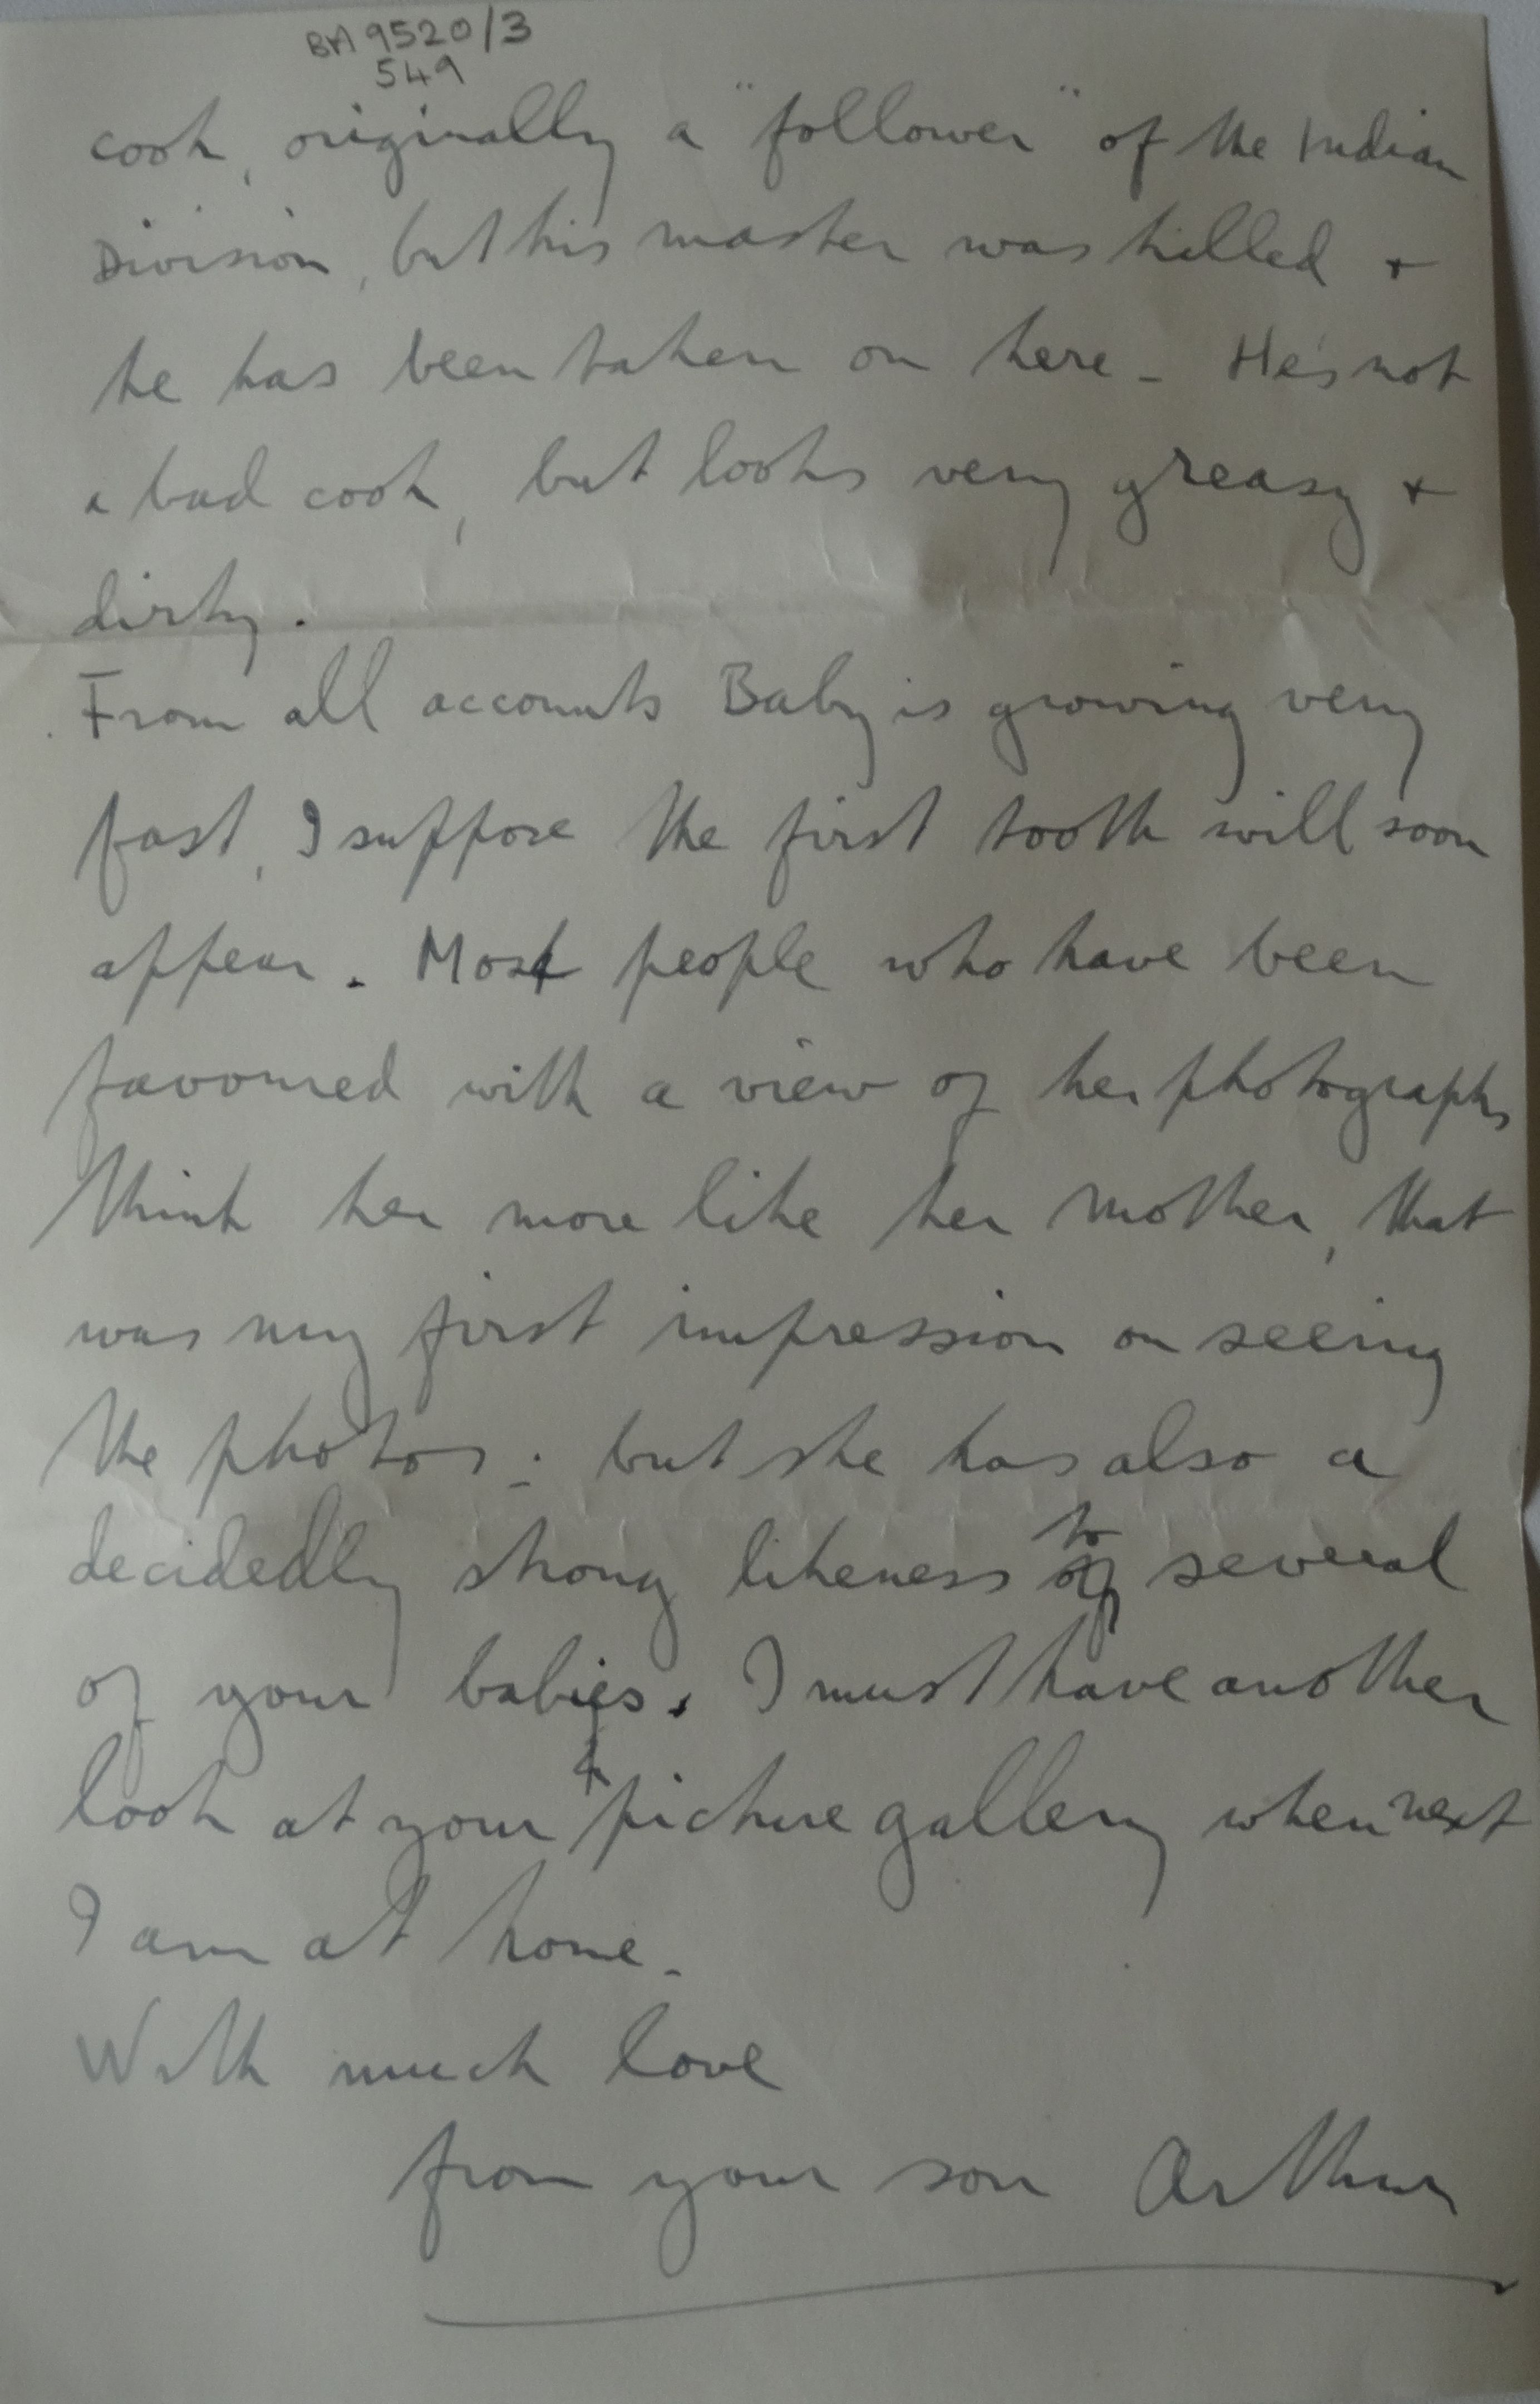 BA 9520/3
549
cook, originally a "follower" of the Indian
Division, but his master was killed +
he has been taken on here - He's not
a bad cook, but looks very greasy +
dirty.
From all accounts Baby is growing very
fast, I suppose the first tooth will soon
appear. Most people who have been
favoured with a view of her photographs
think her more like her mother, that
was my first impression on seeing
the photos: but she has also a
decidedly strong likeness to of several
of your babies. I must have another
look at your picture gallery when next
I am at home.
With much love
from your son Arthur